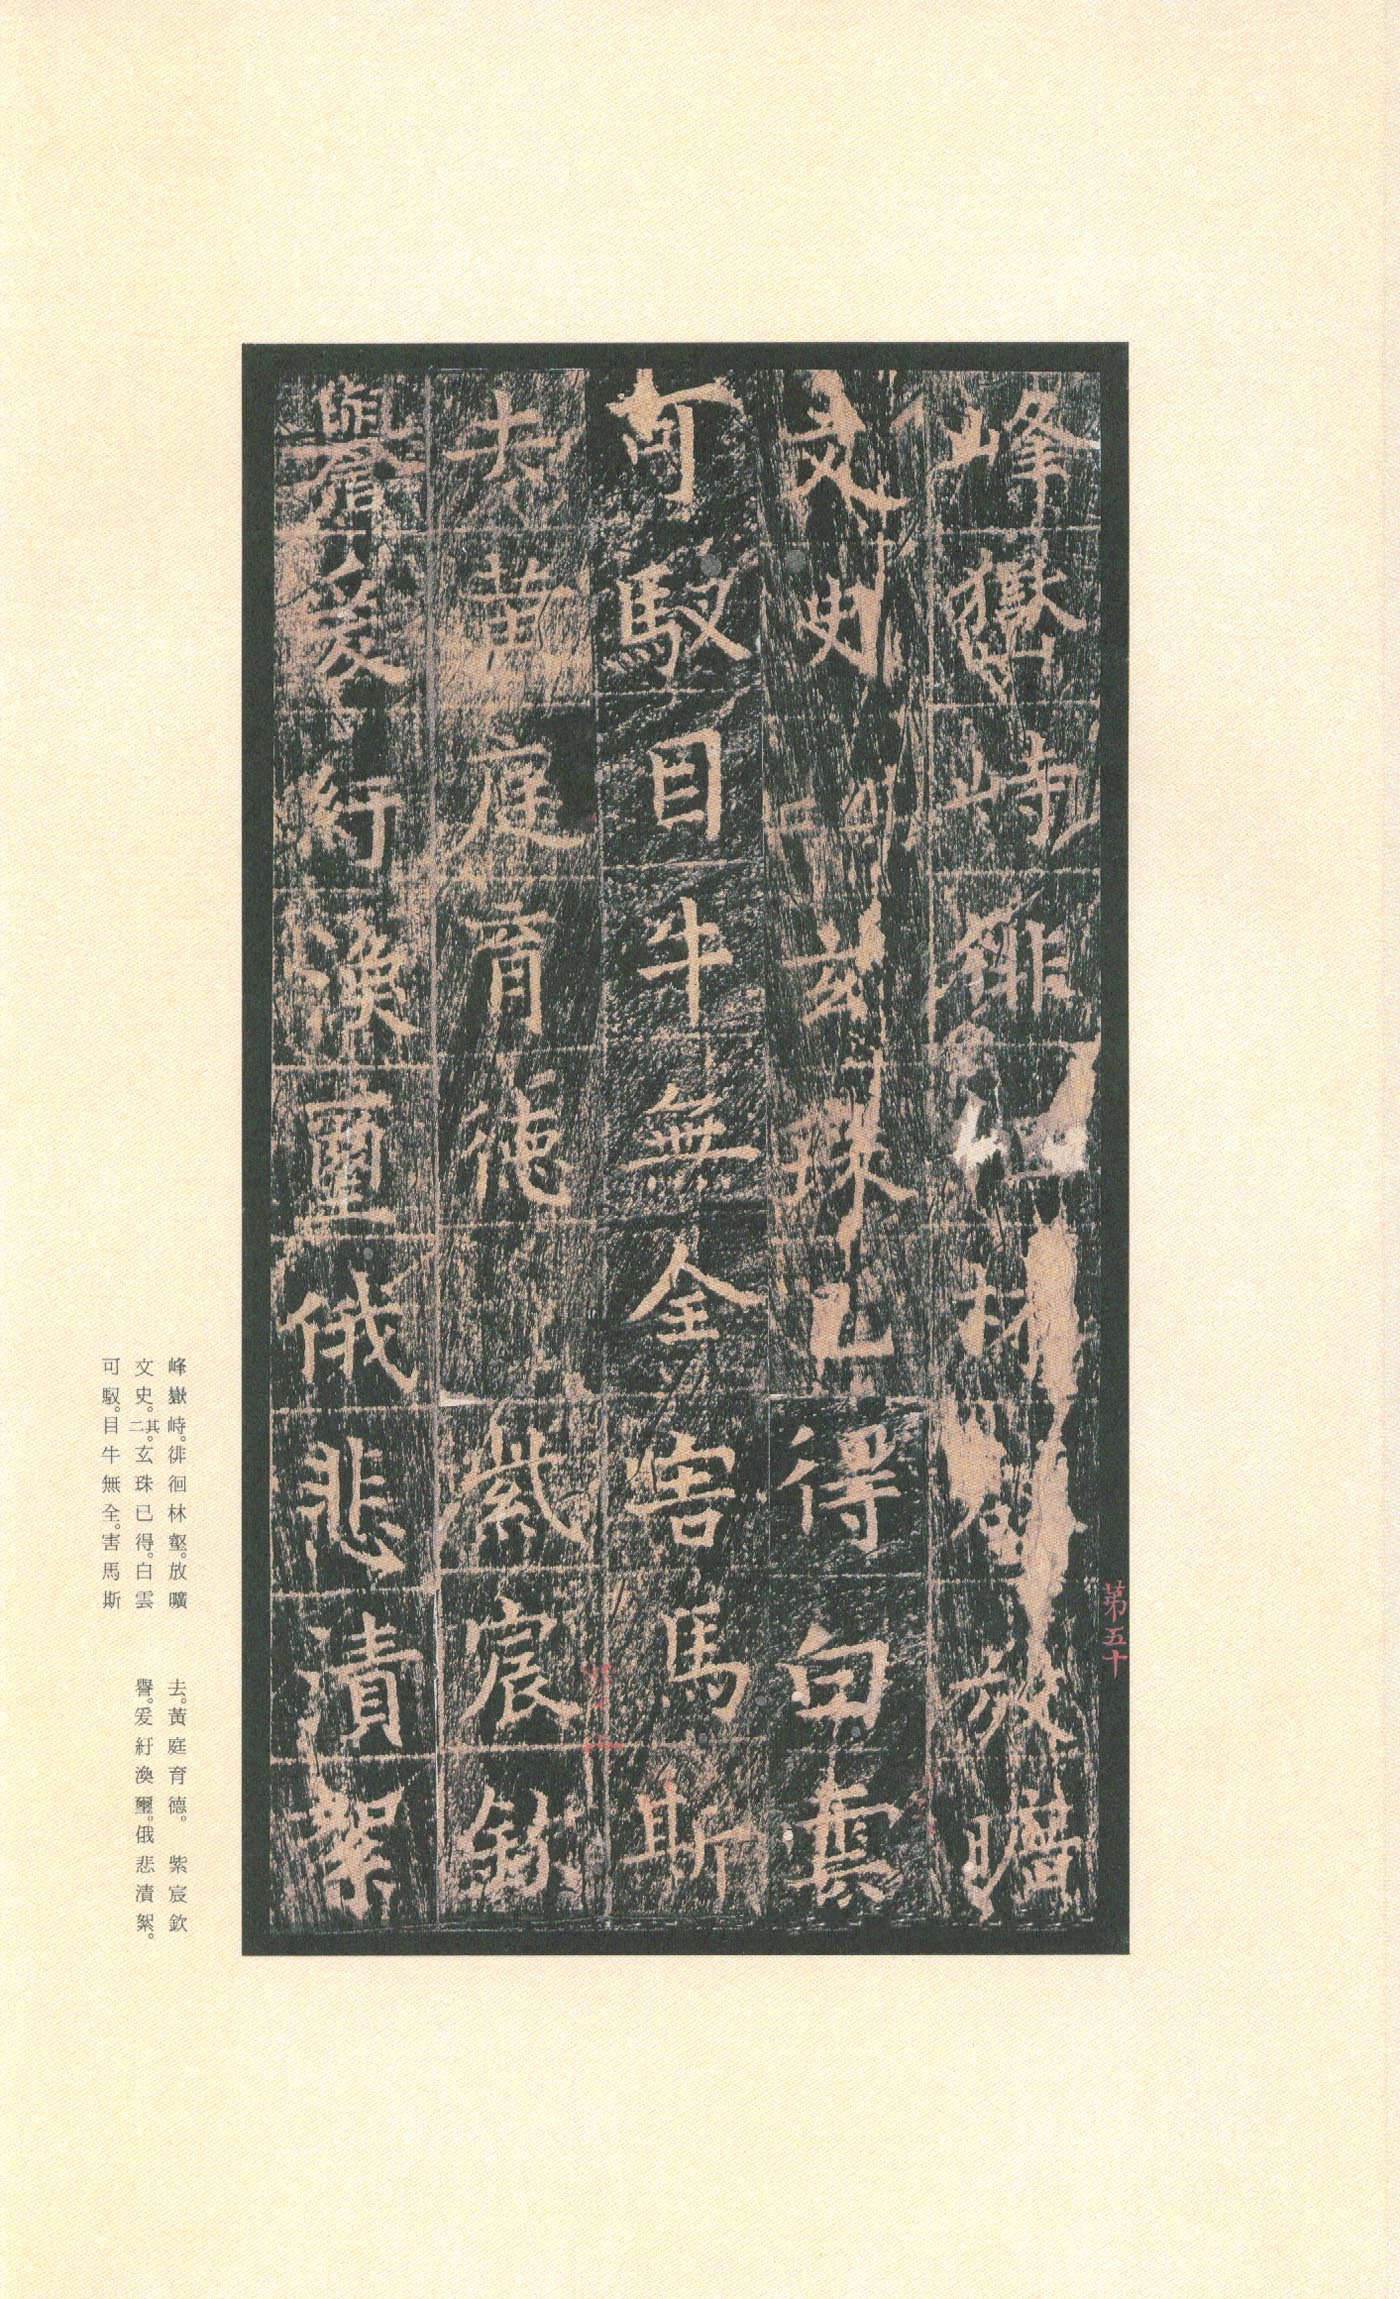 峰嶽峙徘徊林壑放曠
文史其二玄珠已得白雲
可馭目牛無全害馬斯
去黃庭育德紫宸欽
譽爰紆渙璽俄悲漬絮
第五十
峰嶽峙。徘徊林壑。放曠
文史。其二。玄珠已得。白雲
可馭。目牛無全。害馬斯
去。黃庭育德。　紫宸欽
譽。爰紆渙璽。俄悲漬絮。